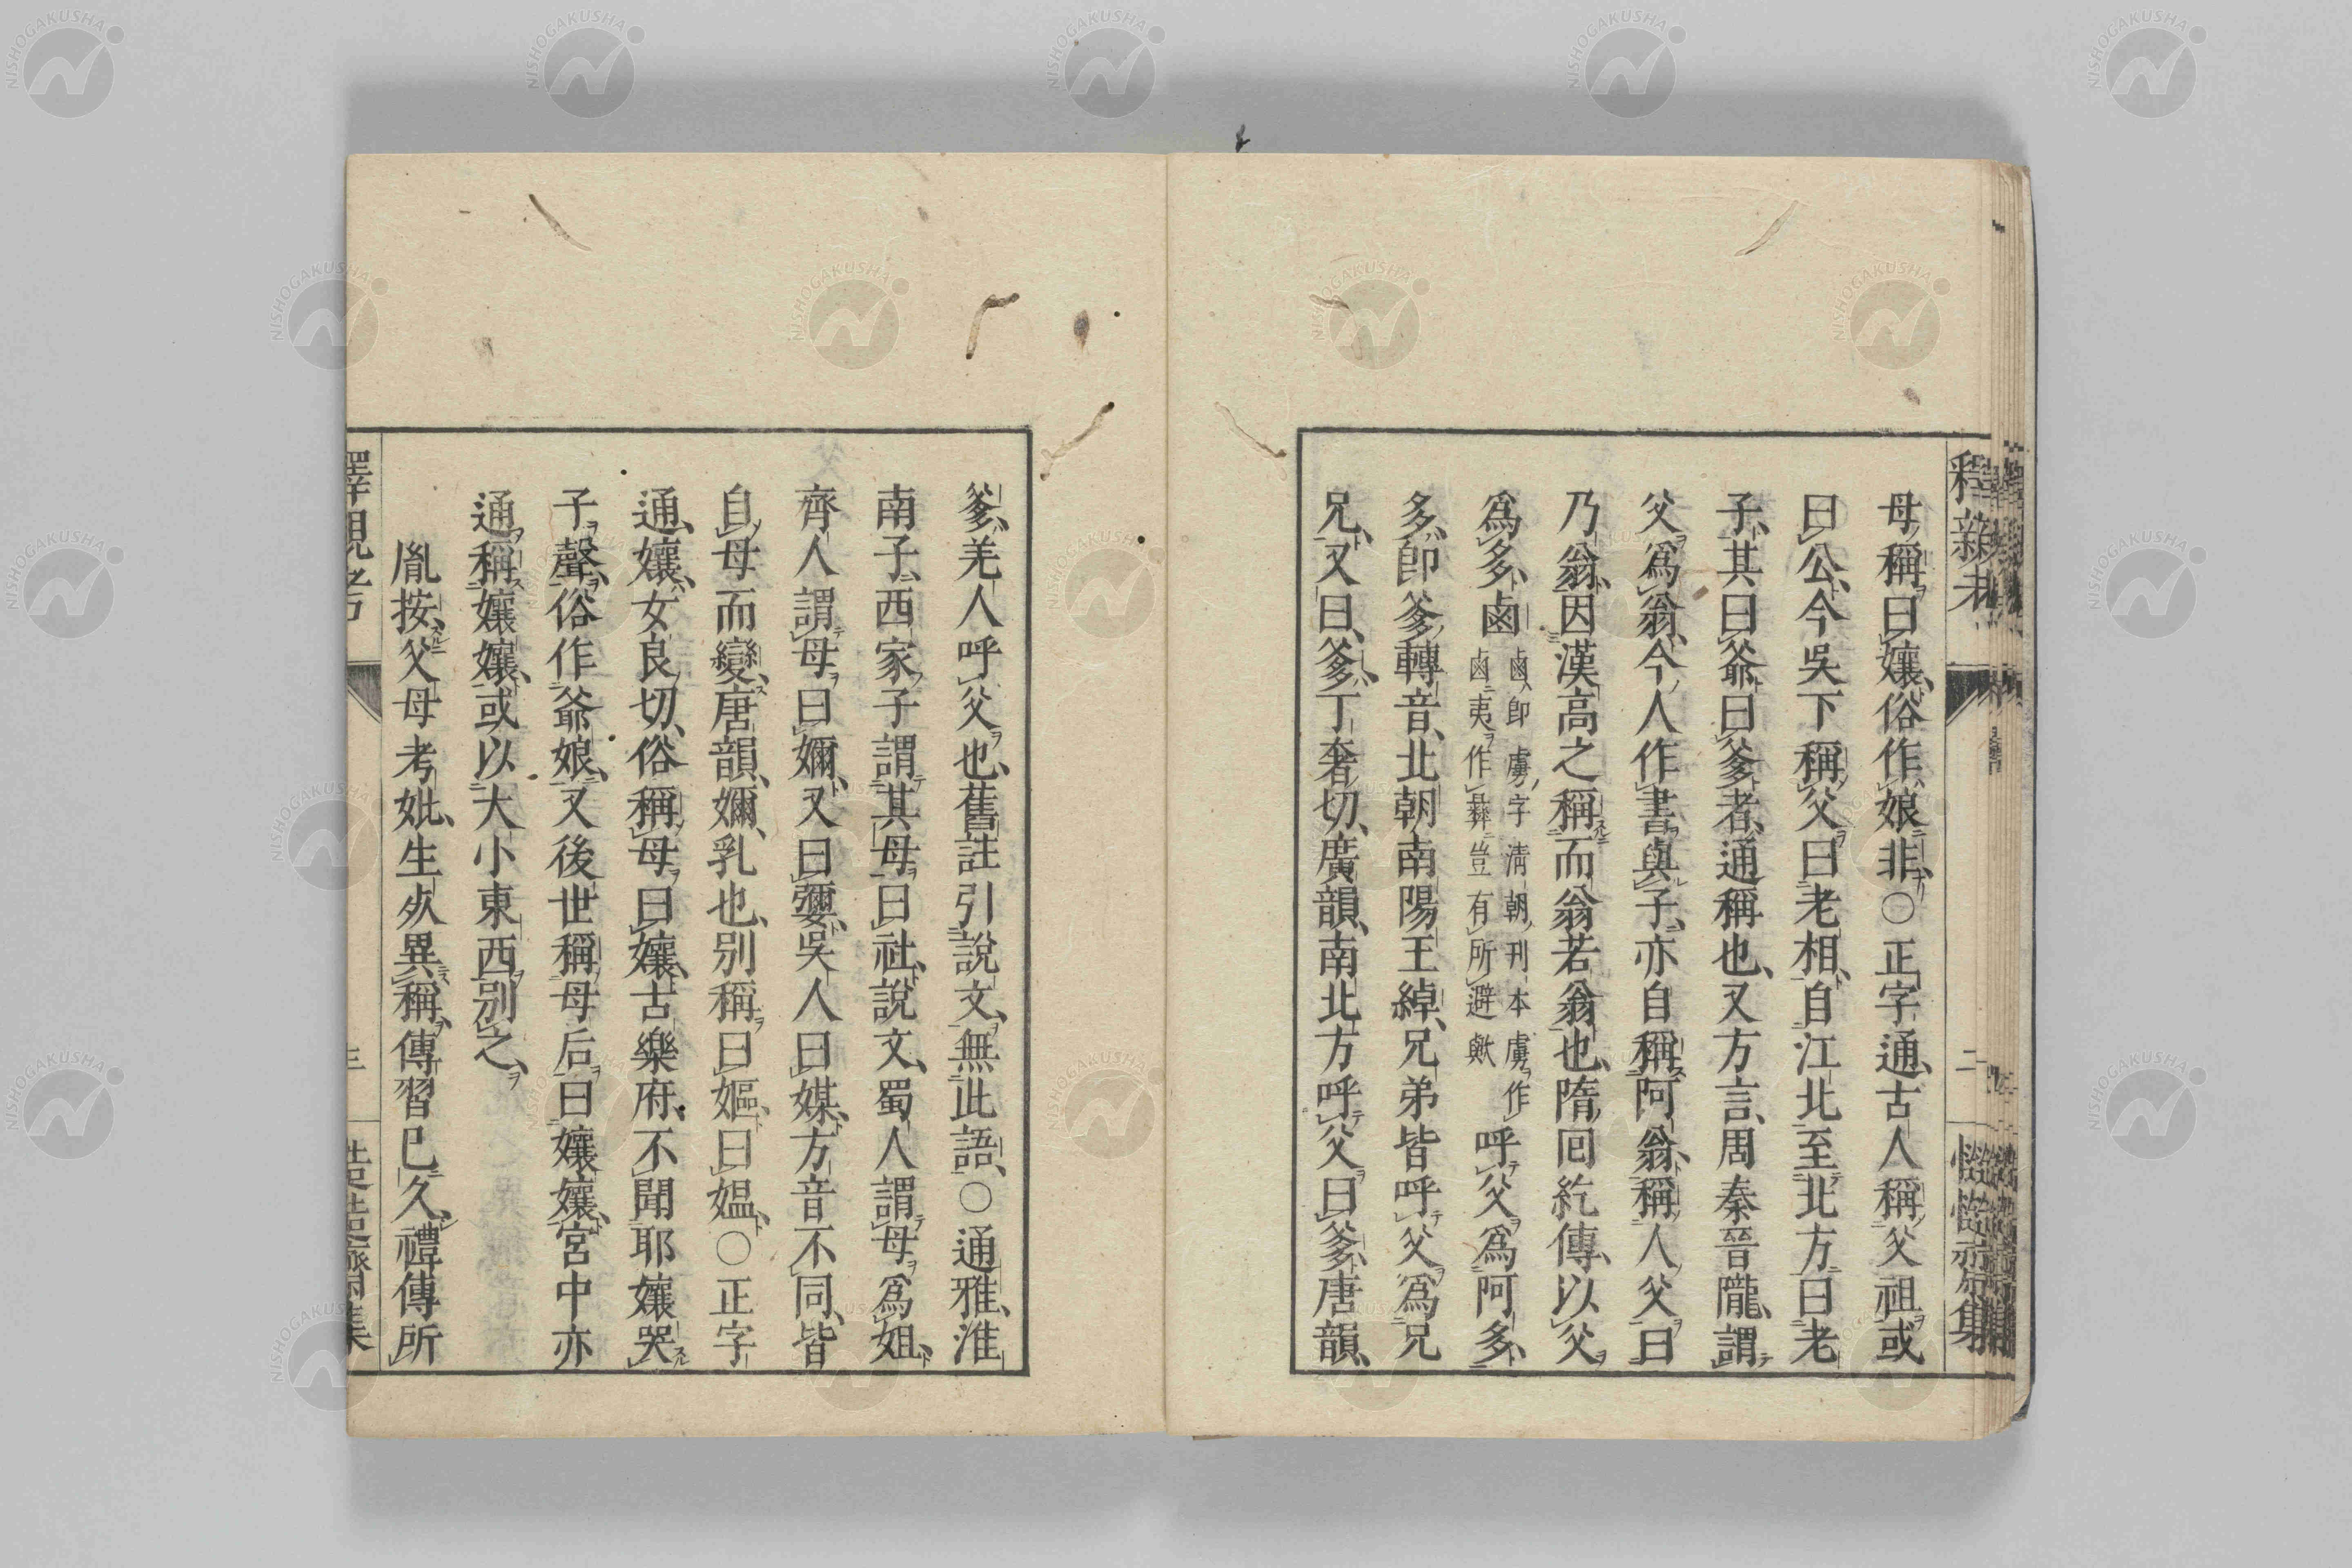 母稱曰孃、俗作娘非、○正字通、古人稱父祖或
曰公、今吳下稱父曰老相、自江北至北方曰老
子、其曰爺曰爹者、通稱也、又方言、周秦晉隴、謂
父爲翁、今人作書與子、亦自稱阿翁、稱人父曰
乃翁、因漢高之稱而翁若翁也、隋回紇傳、以父
爲多、鹵
鹵、卽虜字淸朝刊本虜作
鹵夷作彝豈有所避歟
呼父爲阿多、
多、卽爹轉音、北朝南陽王綽、兄弟皆呼父爲兄
兄、又曰、爹、丁奢切、廣韻、南北方呼父曰爹、唐韻、
二
爹、羌人呼父也、舊註引說文、無此語、○通雅、淮
南子、西家子謂其母曰社、說文、蜀人謂母爲姐、
齊人謂母曰嬭、又曰㜷、吳人曰媒、方音不同、皆
自母而變、唐韻、嬭、乳也、別稱曰嫗、曰媼、○正字
通、孃、女良切、俗稱母曰孃、古樂府、不聞耶孃哭
子聲、俗作爺娘、又後世稱母后曰孃孃、宮中亦
通稱孃孃、或以大小東西別之、
胤按、父母考妣、生㱙異稱、傳習已久、禮傳所
三
NISHOGAKUSHA